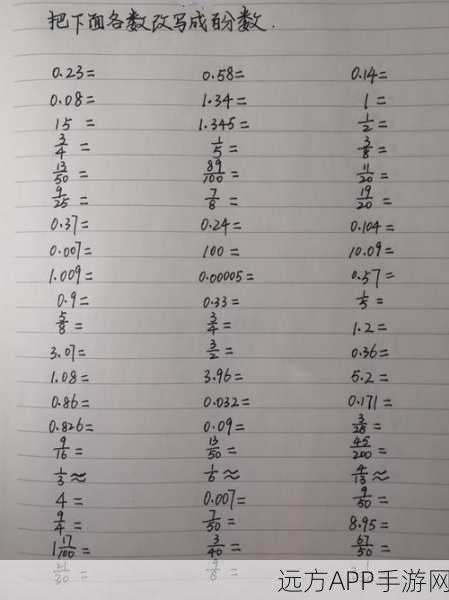 把下面各数改写成百分数.
0.23= 0.58= 0.14=
0.08= 1.34= 1=
15 = 1.345= 1/2 =
3/4 = 1/5 = 3/8 =
13/50 = 89/100 = 11/20 =
9/25 = 7/8 = 19/20 =
0.37= 0.24= 0.104=
0.007= 100= 10.09=
1.009= 0.00005= 0.57=
0.9= 0.33= 1/5 =
5/8 = 3/4 = 1.2=
3.07= 3/2 = 0.36=
1.08= 3.96= 5.2=
0.86= 0.032= 0.171=
0.826= 0.09= 3/25 =
9/16 = 13/50 = 45/200 =
1/3 ≈ 1/6 ≈ 4/13 ≈
4= 0.007= 9/50 =
9/4 = 7/50 = 8.95=
1 17/100 = 3/40 = 67/50 =
21/30 =
远方APP手游网